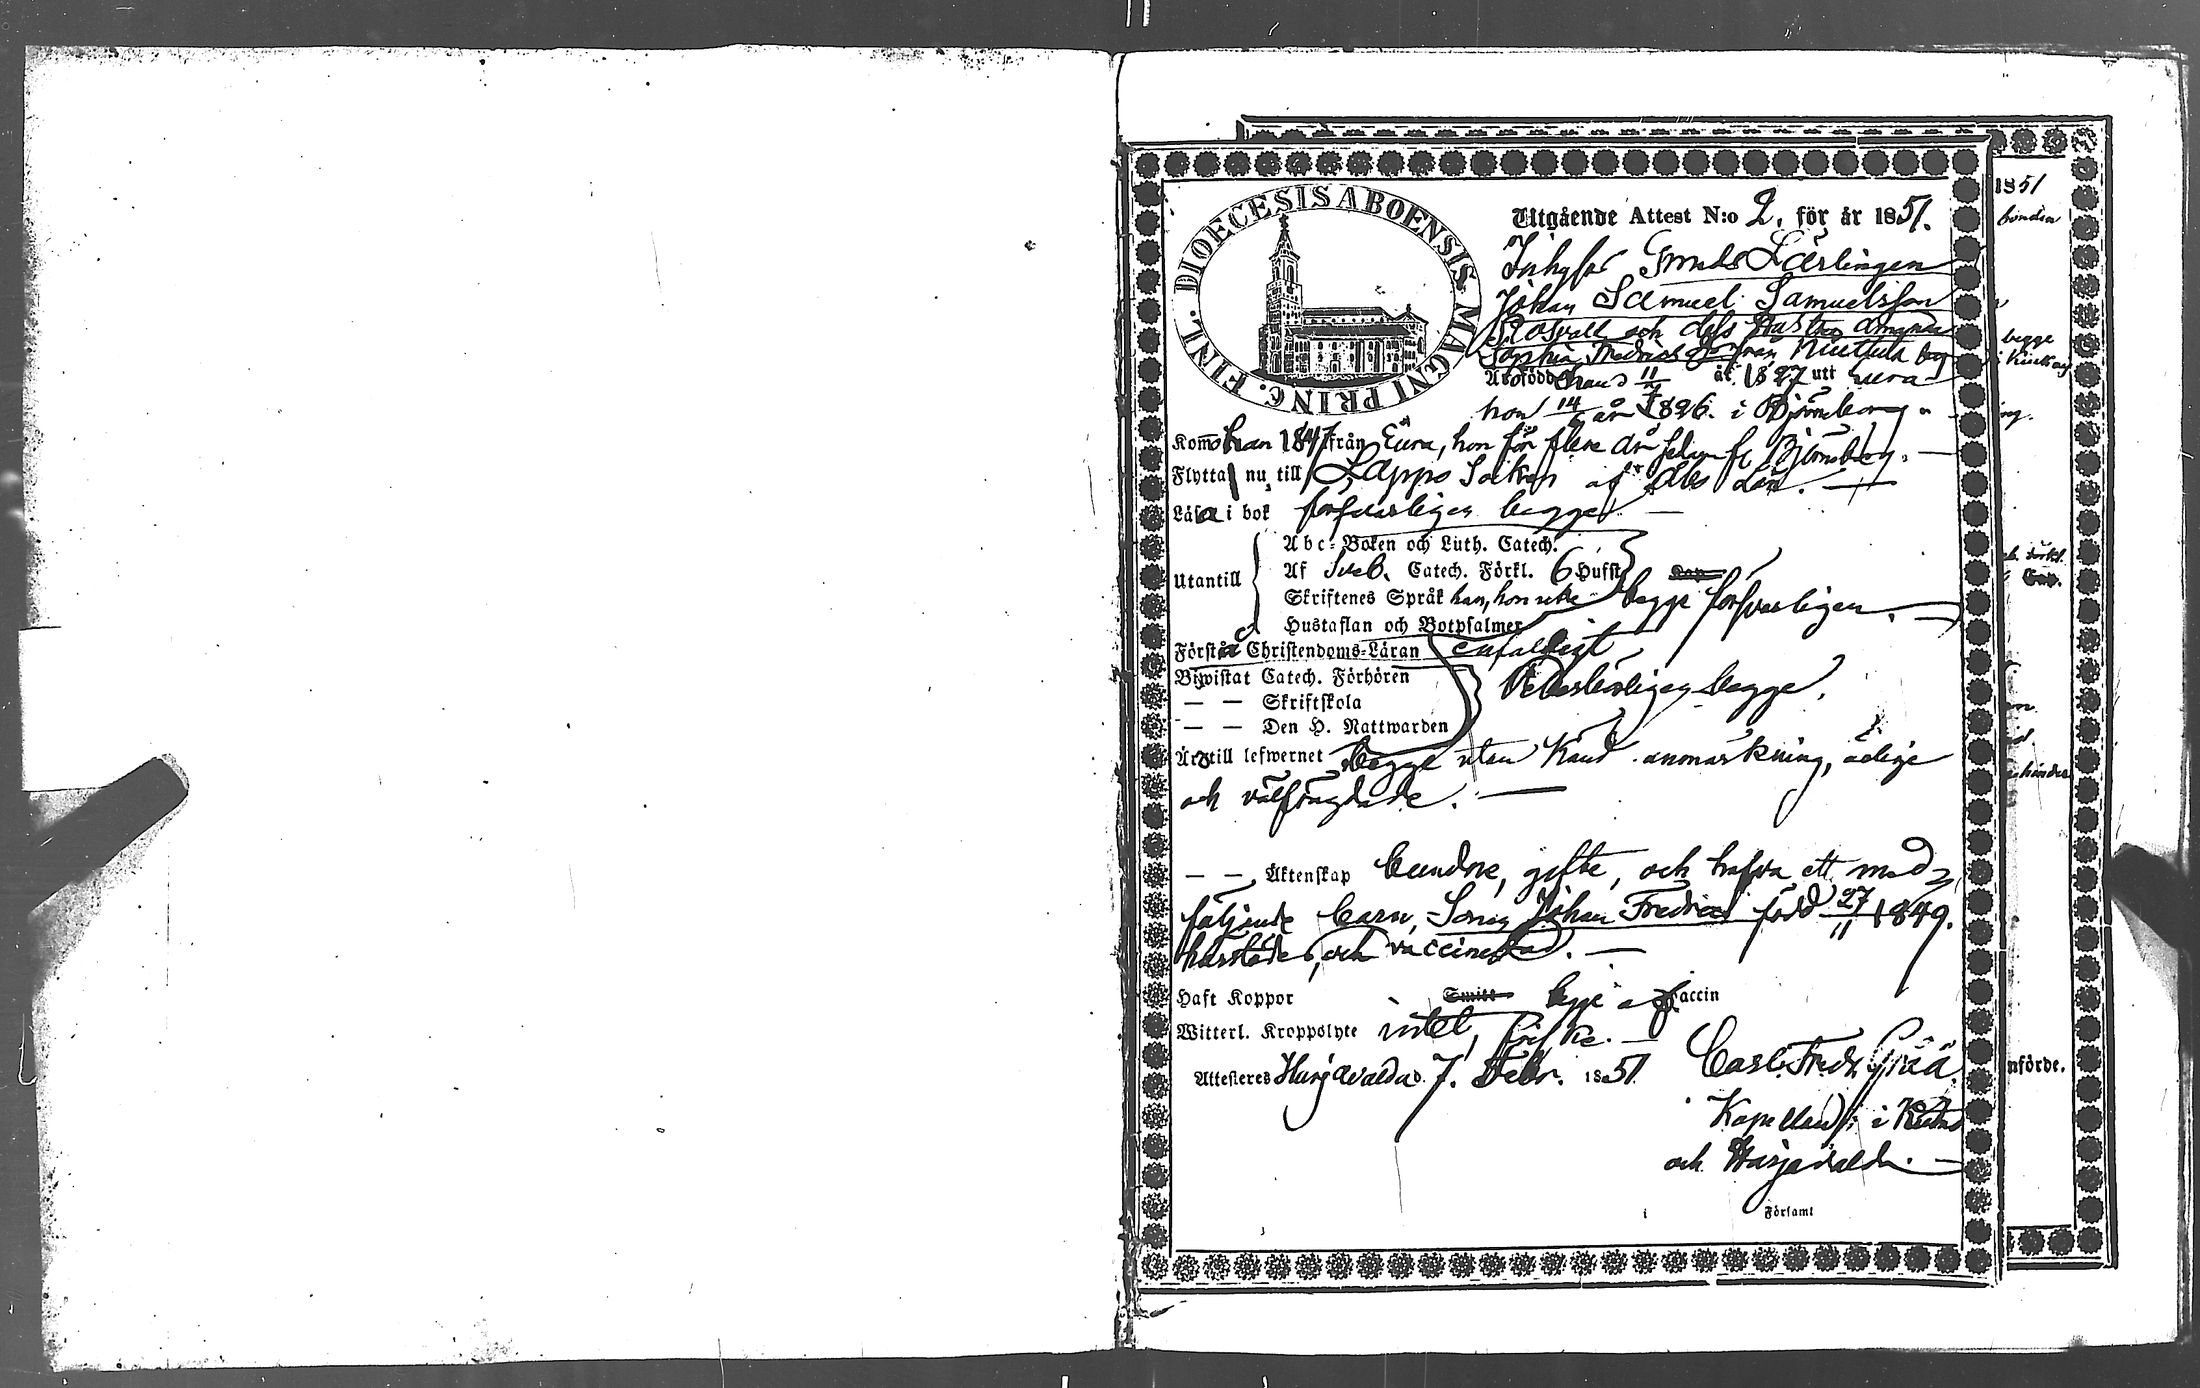 DIOECESIS ABOENSIS MAGNI PRINC. FINL.
Utgående Attest N:o 2. för år 1851.
Lärlingen
Johan Samuel Samuelsson
och dess Hustru Amanda
Sophia från
Äro född han d 11 år 1827 utt Eura
hon 14 år 1826. i Björneborg
Komō han 1847 från Eura, hon för flere år sedan fr Björneborg.
Flytta nu till Lappo Socken af Åbo Län.
Läsa i bok försvarligen begge
Abc-Boken och Luth. Catech.
Utantill Af Sveb. Catech. Förkl. 6 Hufst Kap
Skriftenes Språk han, hon icke begge försvarligen.
Hustaflan och Botpsalmer
Förstå Christendoms-Läran enfaldigt
Biwistat Catech. Förhören
— — Skriftskola begge.
— — Den H. Nattwarden
Äro till lefwernet begge utan känd anmärkning, ärlige
och välfrägdade. —
— — Äktenskap bundne, gifte, och hafva ett med
följande barn, Sonen Johan Fredric född 27/11 1849.
härstädes, och vaccinerad. —
Haft Koppor Smitt begge af Vaccin
Witterl. Kroppslyte intet, friske. —
Attesteres Harjavalda d. 7. Febr. 1851.
Carl Fredr.
Kapellan i
och Harjavalda. —
i Församl
1851
bonden
begge
Cap.
nförde.